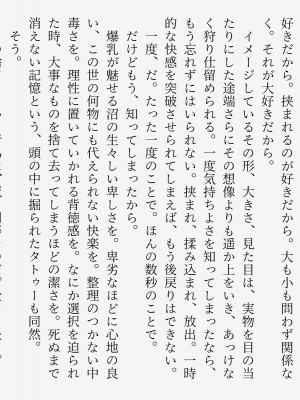 好きだから。挟まれるのが好きだから。大も小も問わず関係な
く。それが大好きだから。
イメージしているその形、大きさ、見た目は、実物を目の当
たりにした途端さらにその想像よりも遥か上をいき、あっけな
く狩り仕留められる。一度気持ちよさを知ってしまったなら、
もう忘れずにはいられない。挟まれ、揉み込まれ、放出。一時
的な快感を突破させられてしまえば、もう後戻りはできない。
一度、だ。たった一度のことで。ほんの数秒のことで。
だけどもう、知ってしまったから。
爆乳が魅せる沼の生々しい卑しさを。卑劣なほどに心地の良
い、この世の何物にも代えられない快楽を。整理のつかない中
毒さを。理性に置いていかれる背徳感を。なにか選択を迫られ
た時、大事なものを捨て去ってしまうほどの潔さを。死ぬまで
消えない記憶という、頭の中に掘られたタトゥーも同然。
そう。